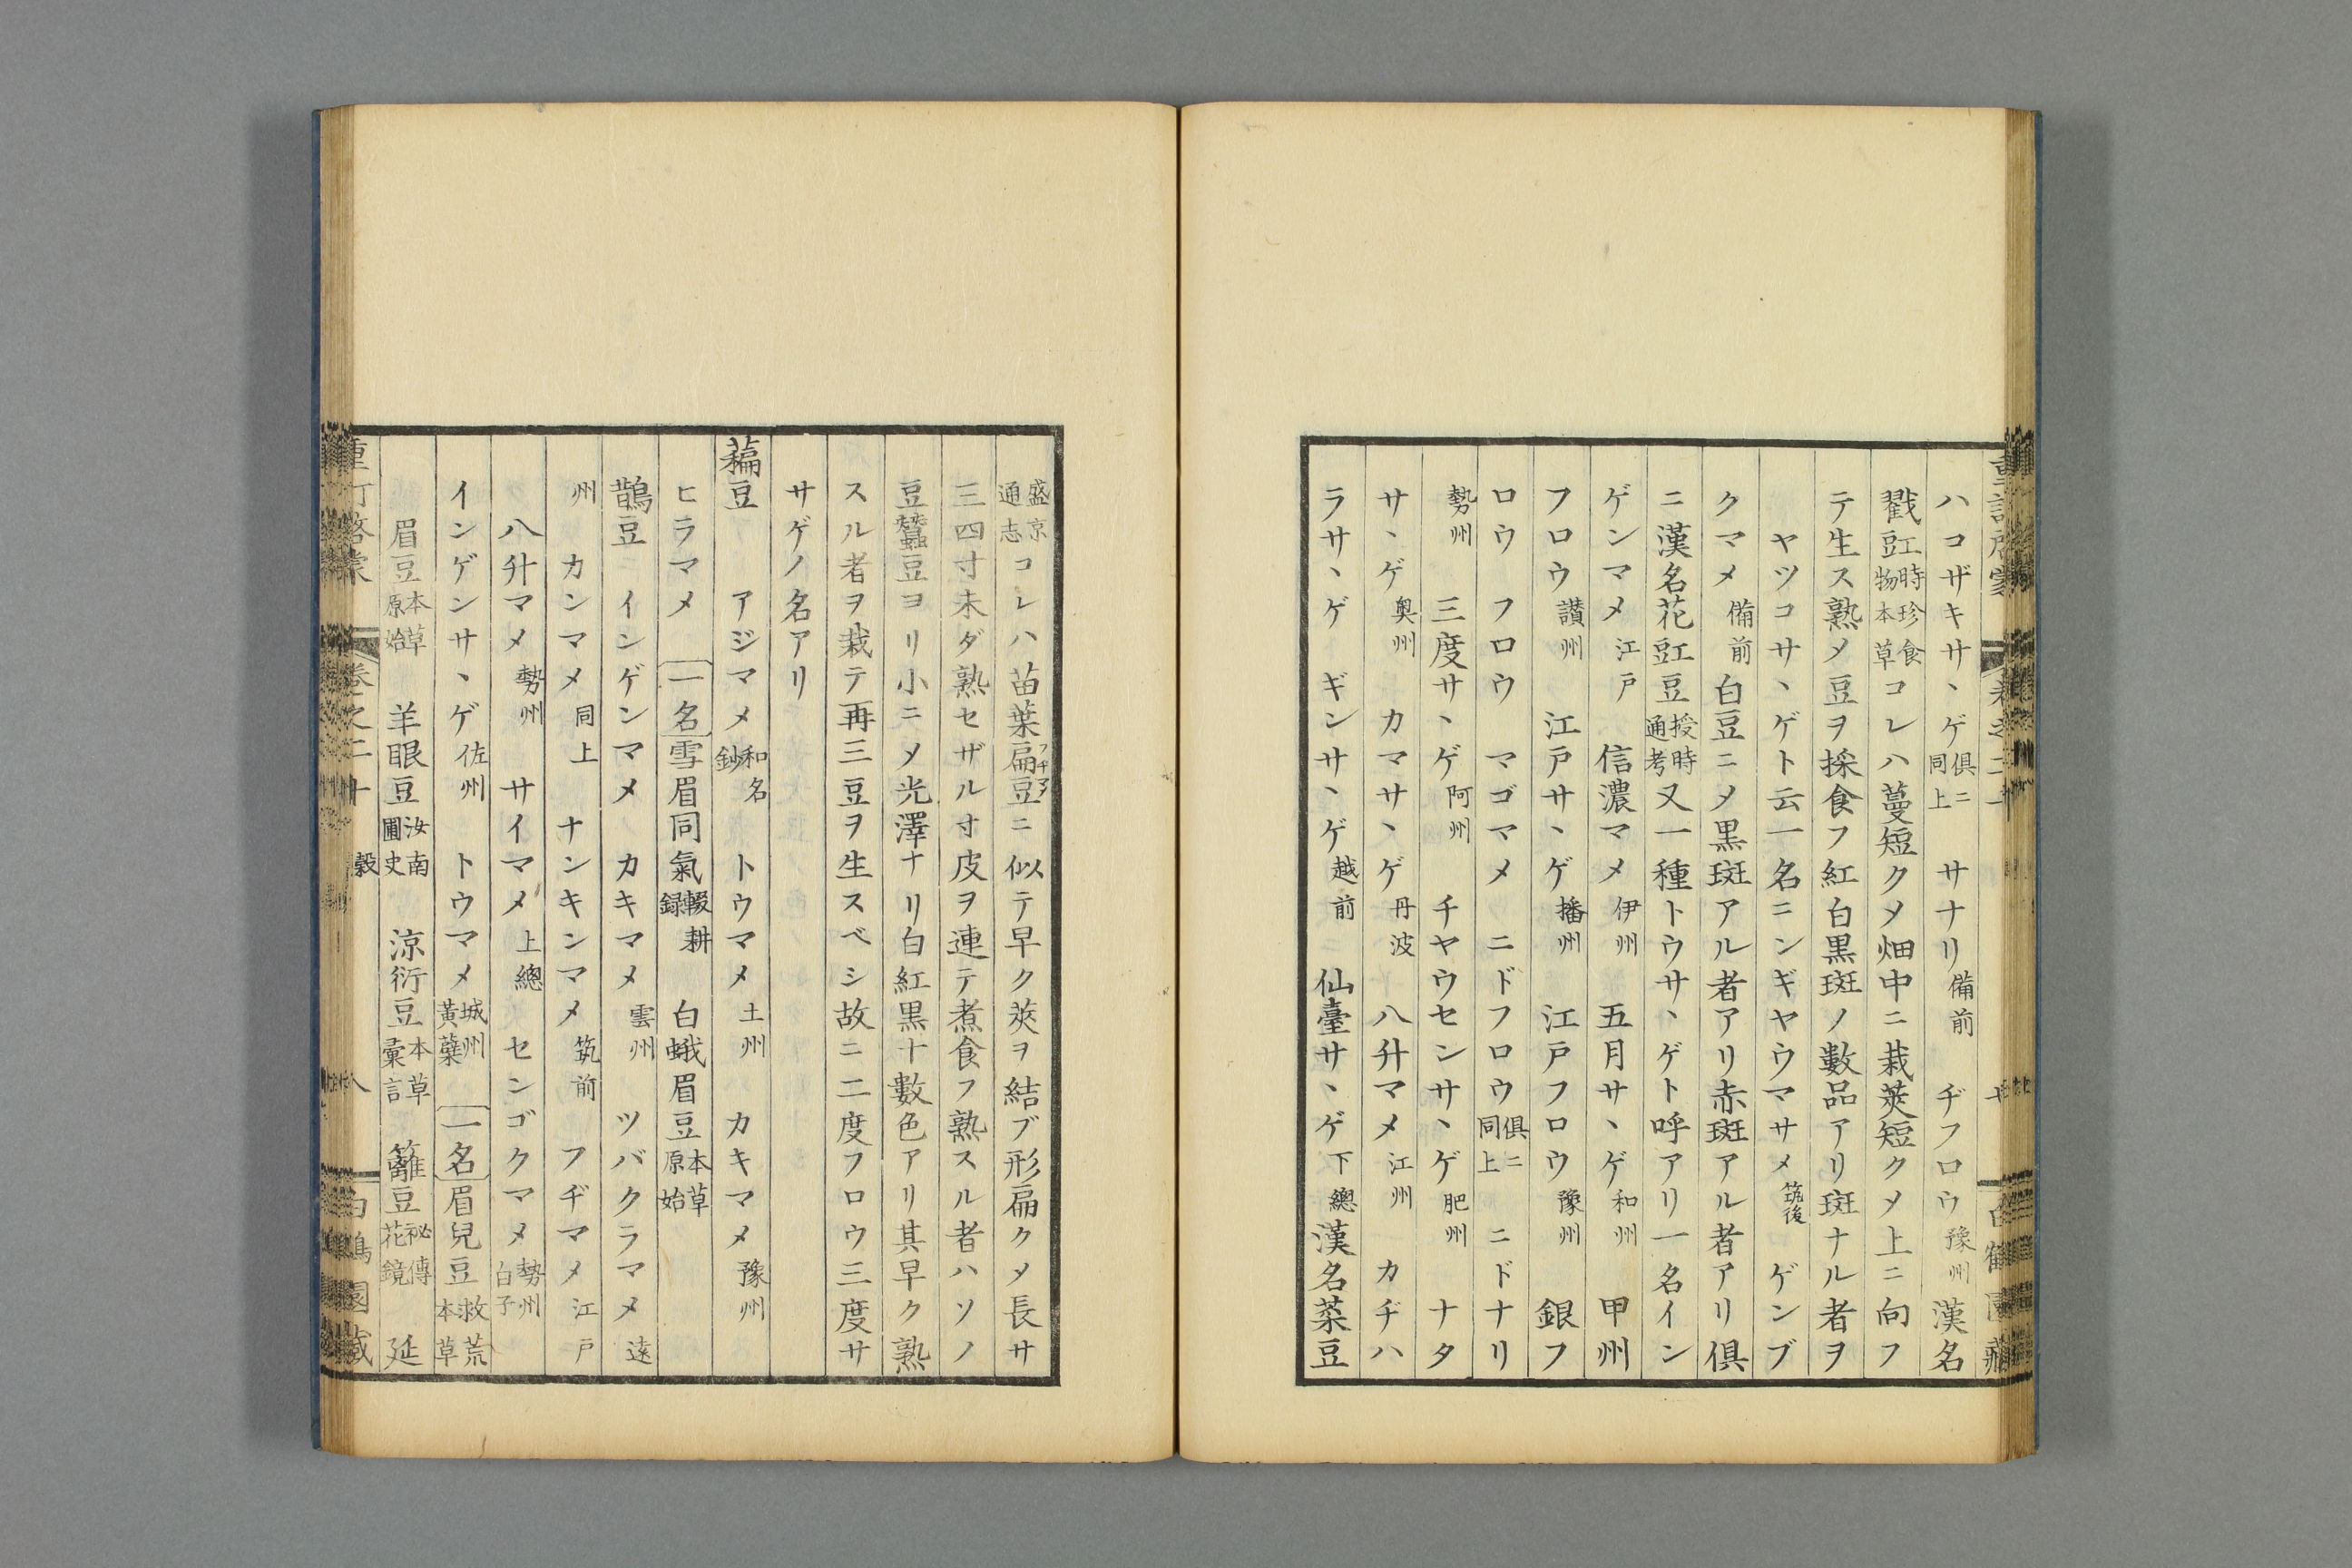 ハコザキサヽゲ 俱ニ同上 サナリ 備前 ヂフロウ 豫州 漢名
戳豇 時珍食物本草 コレハ蔓短クメ畑中ニ栽莢短クメ上ニ向フ
テ生ス熟メ豆ヲ採食フ紅白黒斑ノ數品アリ斑ナル者ヲ
ヤツコサヽゲト云一名ニンギヤウマサメ 筑後 ゲンブ
クマメ 備前 白豆ニメ黒斑アル者アリ赤斑アル者アリ俱
ニ漢名花豇豆 授時通考 又一種トウサヽゲト呼アリ一名イン
ゲンマメ 江戸 信濃マメ 伊州 五月サヽゲ 和州 甲州
フロウ 讃州 江戸サヽゲ 播州 江戸フロウ 豫州 銀フ
ロウ フロウ マゴマメ ニドフロウ 俱ニ同上 ニドナリ
勢州 三度サヽゲ 阿州 チヤウセンサヽゲ 肥州 ナタ
サヽゲ 奥州 カマサヽゲ 丹波 八升マメ 江州 カヂハ
ラサヽゲ ギンサヽゲ 越前 仙臺サヽゲ 下總 漢名菜豆
盛京通志 コレハ苗葉扁豆ニ似テ早ク莢ヲ結ブ形扁クメ長サ
三四寸未ダ熟セザル寸皮ヲ連テ煮食フ熟スル者ハソノ
豆蠶豆ヨリ小ニメ光澤ナリ白紅黒十數色アリ其早ク熟
スル者ヲ栽テ再三豆ヲ生スベシ故ニ二度フロウ三度サ
サゲノ名アリ
藊豆 アジマメ 和名鈔 トウマメ 土州 カキマメ 豫州
ヒラマメ 一名 雪眉同氣 輟耕録 白蛾眉豆 本草原始
鵲豆 インゲンマメ カキマメ 雲州 ツバクラマメ 遠
州 カンマメ 同上 ナンキンマメ 筑前 フヂマメ 江戸
八升マメ 勢州 サイマメ 上總 センゴクマメ 勢州白子
インゲンサヽゲ 佐州 トウマメ 城州黃蘗 一名 眉兒豆 救荒本草
眉豆 本草原始 羊眼豆 汝南圃史 涼衍豆 本草彙言 籬豆 祕傳花鏡 延
卷之二十 穀 八